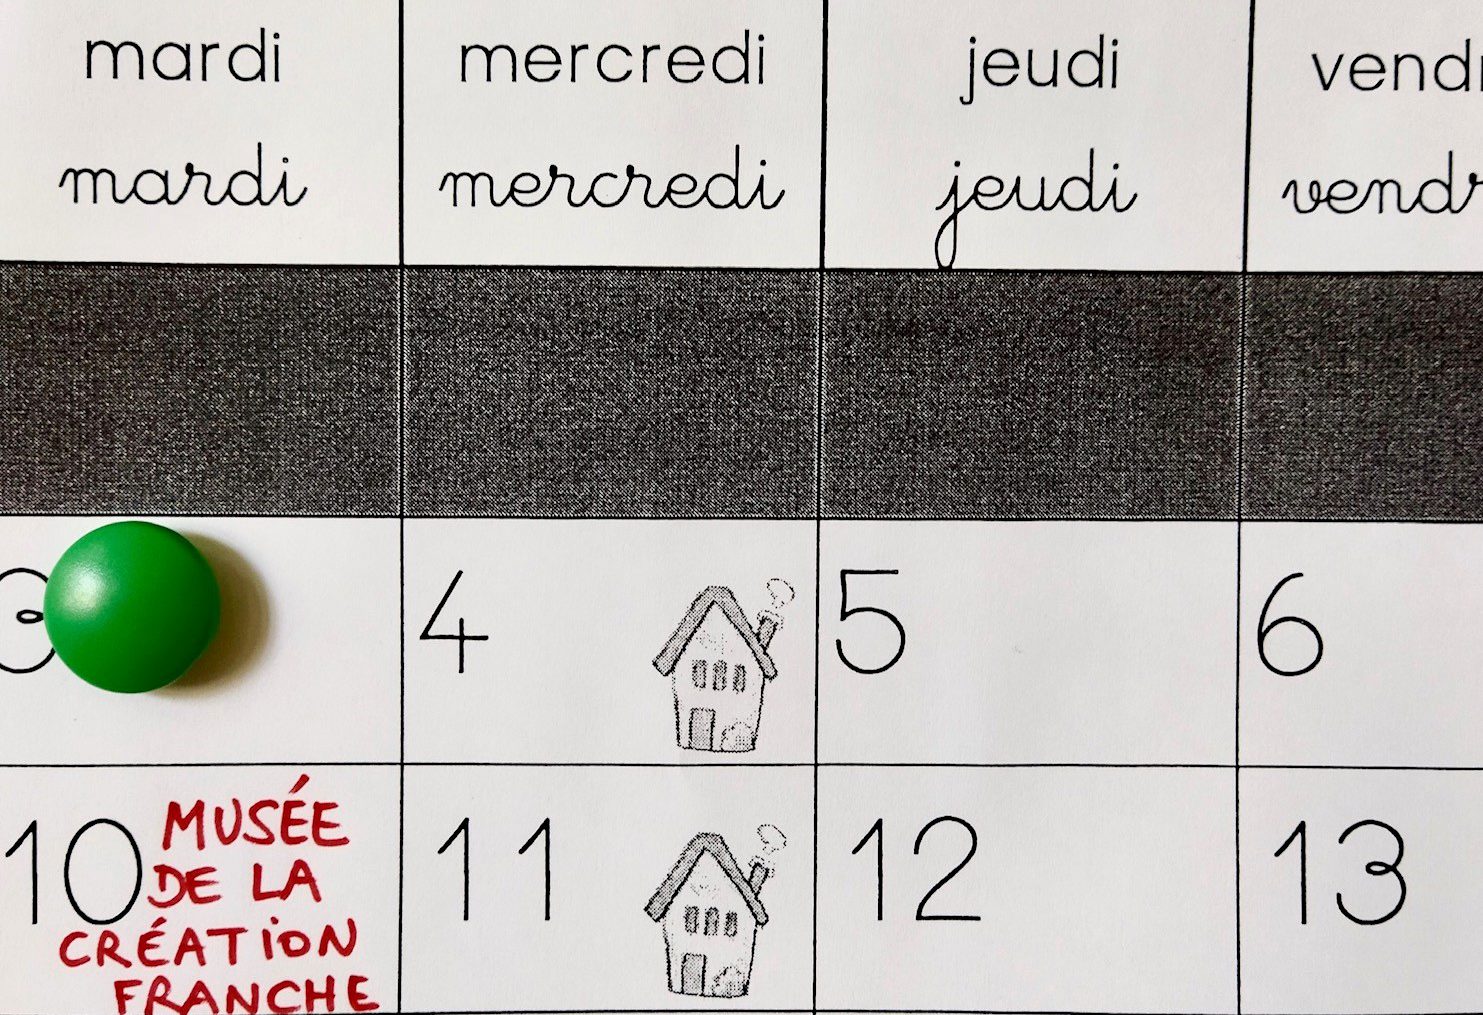 mardi mercredi jeudi vendr
mardi mercredi jeudi vendr
3 4 5 6
10 MUSÉE 11 12 13
DE LA
CRÉATION
FRANCHE